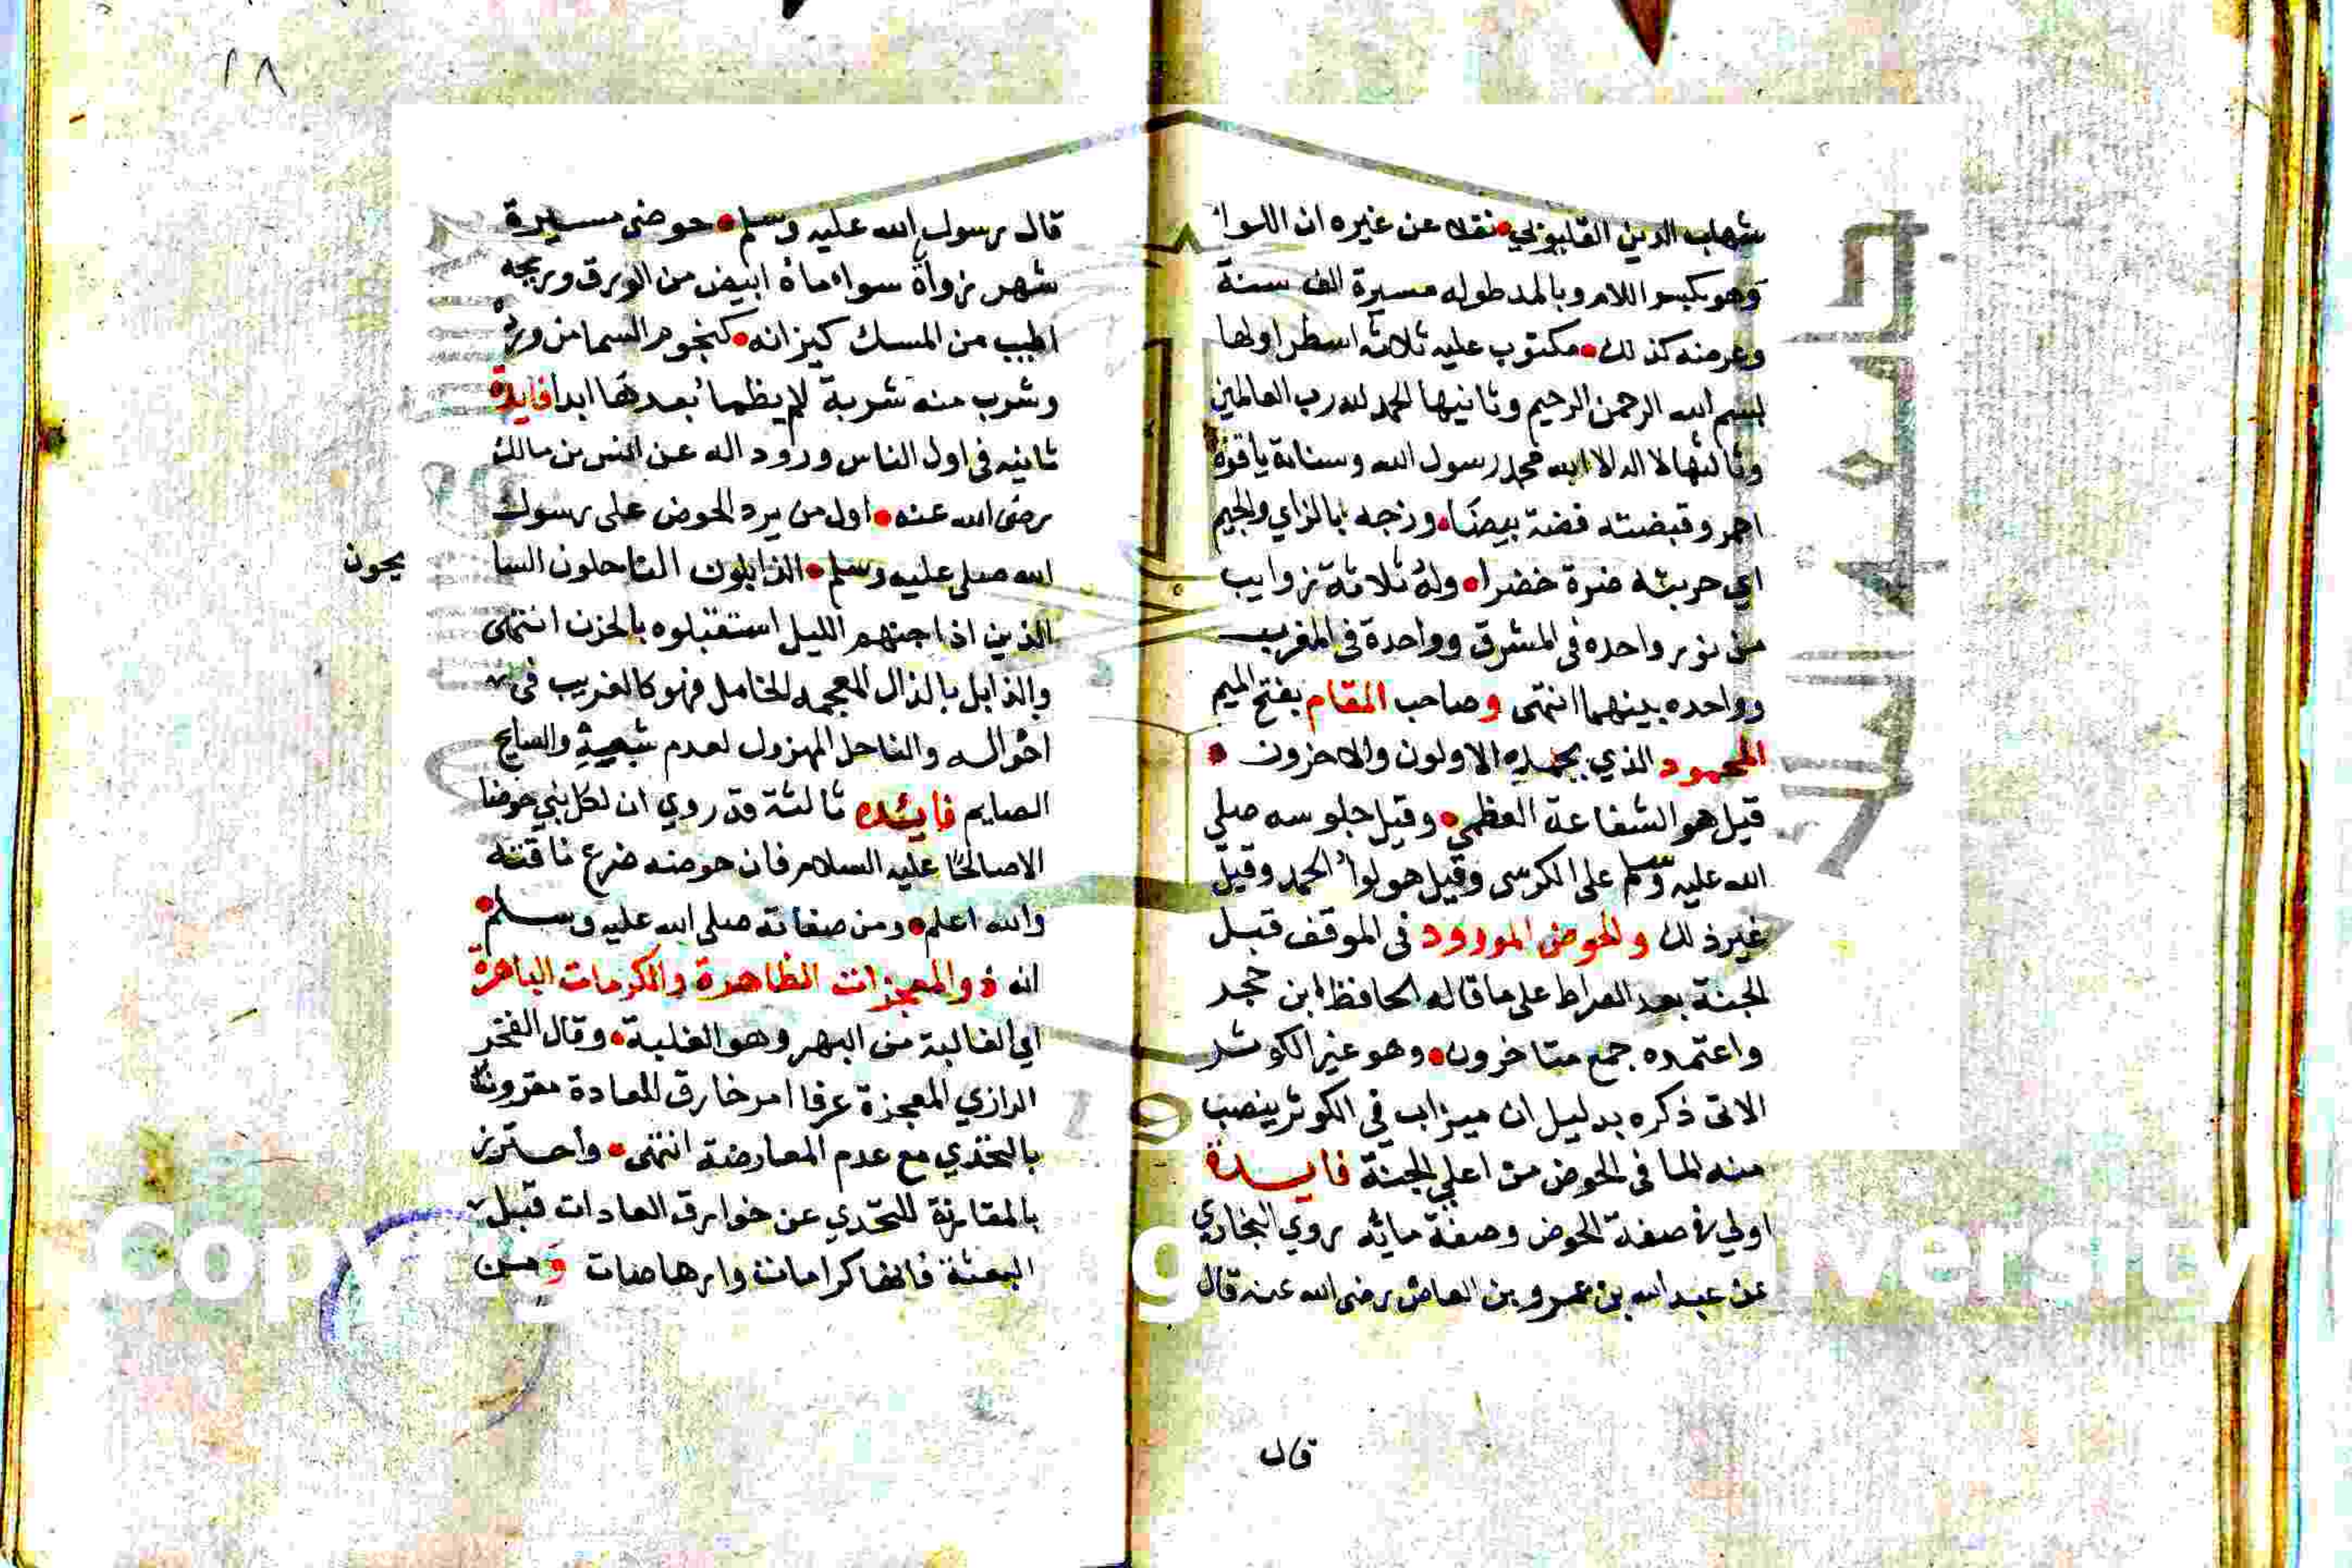 شهاب الدين القليوبي نقلا عن غيره ان اللوا
وهو بكسر اللام وبالمد طوله مسيرة الف سنة
وعرضه كذلك مكتوب عليه ثلاثة اسطر اولها
بسم الله الرحمن الرحيم وثانيها الحمد لله رب العالمين
وثالثها لا اله الا الله محمد رسول الله وسنانه ياقوتة
احمر وقبضته فضة بيضا وزجه بالزاي والجيم
اي حربته خضرة خضرا وله ثلاثة زوايب
من نور واحده في المشرق وواحدة في المغرب
وواحده بينهما انتهى وصاحب المقام بفتح الميم
المحمود الذي يحمده الاولون والاخرون
قيل هو الشفاعة العظمي وقيل جلوسه صلي
الله عليه وسلم على الكرسى وقيل هو لوا الحمد وقيل
غير ذلك والحوض المورود في الموقف قبل
الجنة بعد الصراط على ما قاله الحافظ ابن حجر
واعتمده جمع متاخرون وهو غير الكوثر
الاتى ذكره بدليل ان ميزاب في الكوثر ينصب
منه الما في الحوض من اعلي الجنة فايدة
اولي في صفة الحوض وصفة مائه روي البخاري
عن عبد الله بن عمرو بن العاص رضى الله عنه قال
قال
٢٨
قال رسول الله عليه وسلم حوضى مسيرة
شهر زواة سواء ماة ابيض من الورق وريحه
اطيب من المسك كيزانه كنجوم السما من ورد
وشرب منه شربة لم يظما بعدها ابدا فايدة
ثانيه في اول الناس ورود اله عن انس بن مالك
رضى الله عنه اول من يرد الحوض على رسول
الله صلى عليه وسلم الذابلون الناحلون السا
يحون
الذين اذا جنهم الليل استقبلوه بالحزن انتهى
والذابل بالذال المعجمه الخامل فهو كالغريب في
احواله والناحل المهزول لعدم شبعه والسايح
الصايم فايده ثالثة قد روي ان لكل نبي حوضا
الا صالحا عليه السلام فان حوضه ضرع ناقته
والله اعلم ومن صفاته صلى الله عليه وسلم
انه ذو المعجزات الظاهرة والكرمات الباهرة
اي الغالبة من البهر وهو الغلبة وقال الفخر
الرازي المعجزة عرفا امر خارق للعادة مقرونة
بالتحدي مع عدم المعارضة انتهى واحترز
بالمقارنة للتحدي عن خوارق العادات قبل
البعثة فانها كرامات وارهاصات ومن